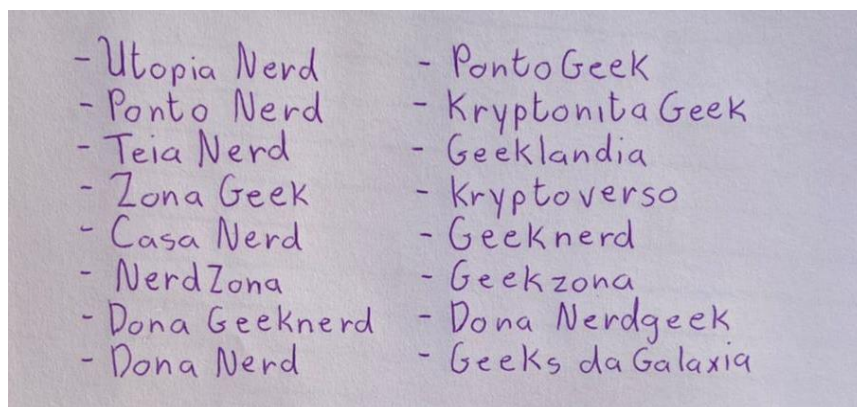 - Utopia Nerd
- Ponto Nerd
- Teia Nerd
- Zona Geek
- Casa Nerd
- NerdZona
- Dona Geeknerd
- Dona Nerd
- PontoGeek
- Kryptonita Geek
- Geeklandia
- Kryptoverso
- Geeknerd
- Geekzona
- Dona Nerdgeek
- Geeks da Galaxia